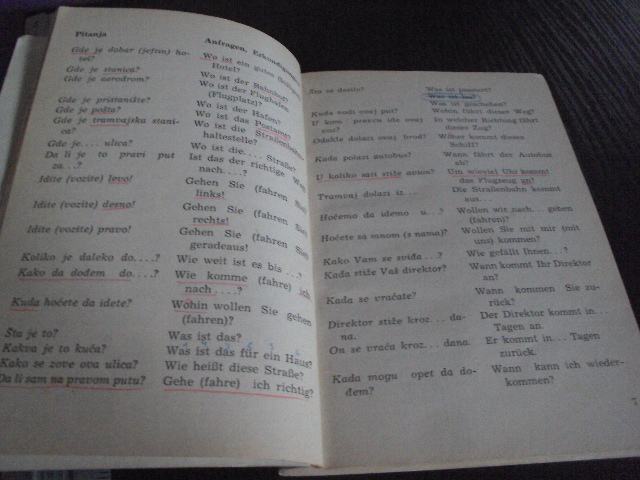 Pitanja
Anfragen, Erkundigungen
Gde je dobar (jeftin) ho-
tel?
Wo ist ein gutes
Hotel?
Gde je stanica?
Wo ist der Bahnhof?
Gde je aerodrom?
Wo ist der Flughafen
(Flugplatz)?
Gde je pristanište?
Wo ist der Hafen?
Gde je pošta?
Wo ist das Postamt?
Gde je tramvajska stani-
ca?
Wo ist die Straßenbahn-
haltestelle?
Gde je.... ulica?
Wo ist die.... Straße?
Da li je to pravi put
za. . .?
Ist das der richtige Weg
nach. . . .?
Idite (vozite) levo!
Gehen Sie (fahren Sie)
links!
Idite (vozite) desno!
Gehen Sie (fahren Sie)
rechts!
Idite (vozite) pravo!
Gehen Sie (fahren Sie)
geradeaus!
Koliko je daleko do. . . .?
Wie weit ist es bis . . .?
Kako da dođem do. . . .?
Wie komme (fahre) ich
nach. . . .?
Kuda hoćete da idete?
Wohin wollen Sie gehen
(fahren)?
Šta je to?
Was ist das?
Kakva je to kuća?
Was ist das für ein Haus?
Kako se zove ova ulica?
Wie heißt diese Straße?
Da li sam na pravom putu?
Gehe (fahre) ich richtig?
Šta se desilo?
Was ist passiert?
Was ist los?
Was ist geschehen?
Kuda vodi ovaj put?
Wohin führt dieser Weg?
U kom pravcu ide ovaj
voz?
In welcher Richtung fährt
dieser Zug?
Odakle dolazi ovaj brod?
Woher kommt dieses
Schiff?
Kada polazi autobus?
Wann fährt der Autobus
ab?
U koliko sati stiže avion?
Um wieviel Uhr kommt
das Flugzeug an?
Tramvaj dolazi iz. . .
Die Straßenbahn kommt
aus. . .
Hoćemo da idemo u. . .?
Wollen wir nach. . . gehen
(fahren)?
Hoćete sa mnom (s nama)?
Wollen Sie mit mir (mit
uns) kommen?
Kako Vam se sviđa. . .?
Wie gefällt Ihnen. . .?
Kada stiže Vaš direktor?
Wann kommt Ihr Direktor
an?
Kada se vraćate?
Wann kommen Sie zu-
rück?
Direktor stiže kroz. . . da-
na.
Der Direktor kommt in. . .
Tagen an.
On se vraća kroz. . . dana.
Er kommt in. . . Tagen
zurück.
Kada mogu opet da do-
đem?
Wann kann ich wieder-
kommen?
7